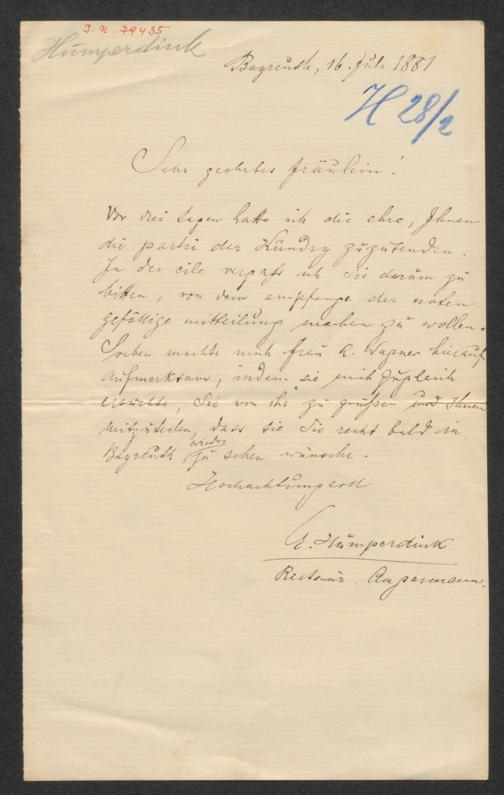 J. N. 79435
Humperdink
Bayreuth, 16. Juli 1881
H 28/2
Sehr geehrtes fräulein!
Vor drei tagen hatte ich die ehre, Ihnen
die partie der Kundry zuzusenden.
In der eile vergass ich Sie darum zu
bitten, von dem empfange der noten
gefällige mitteilung machen zu wollen.
Soeben machte mich frau R. Wagner hierauf
aufmerksam, indem sie mich zugleich
ersuchte, Sie von ihr zu grüßen und Ihnen
mitzuteilen, dass sie Sie recht bald in
Bayreuth wieder zu sehen wünsche.
Hochachtungsvoll
E. Humperdink
Restaur. Angermann.